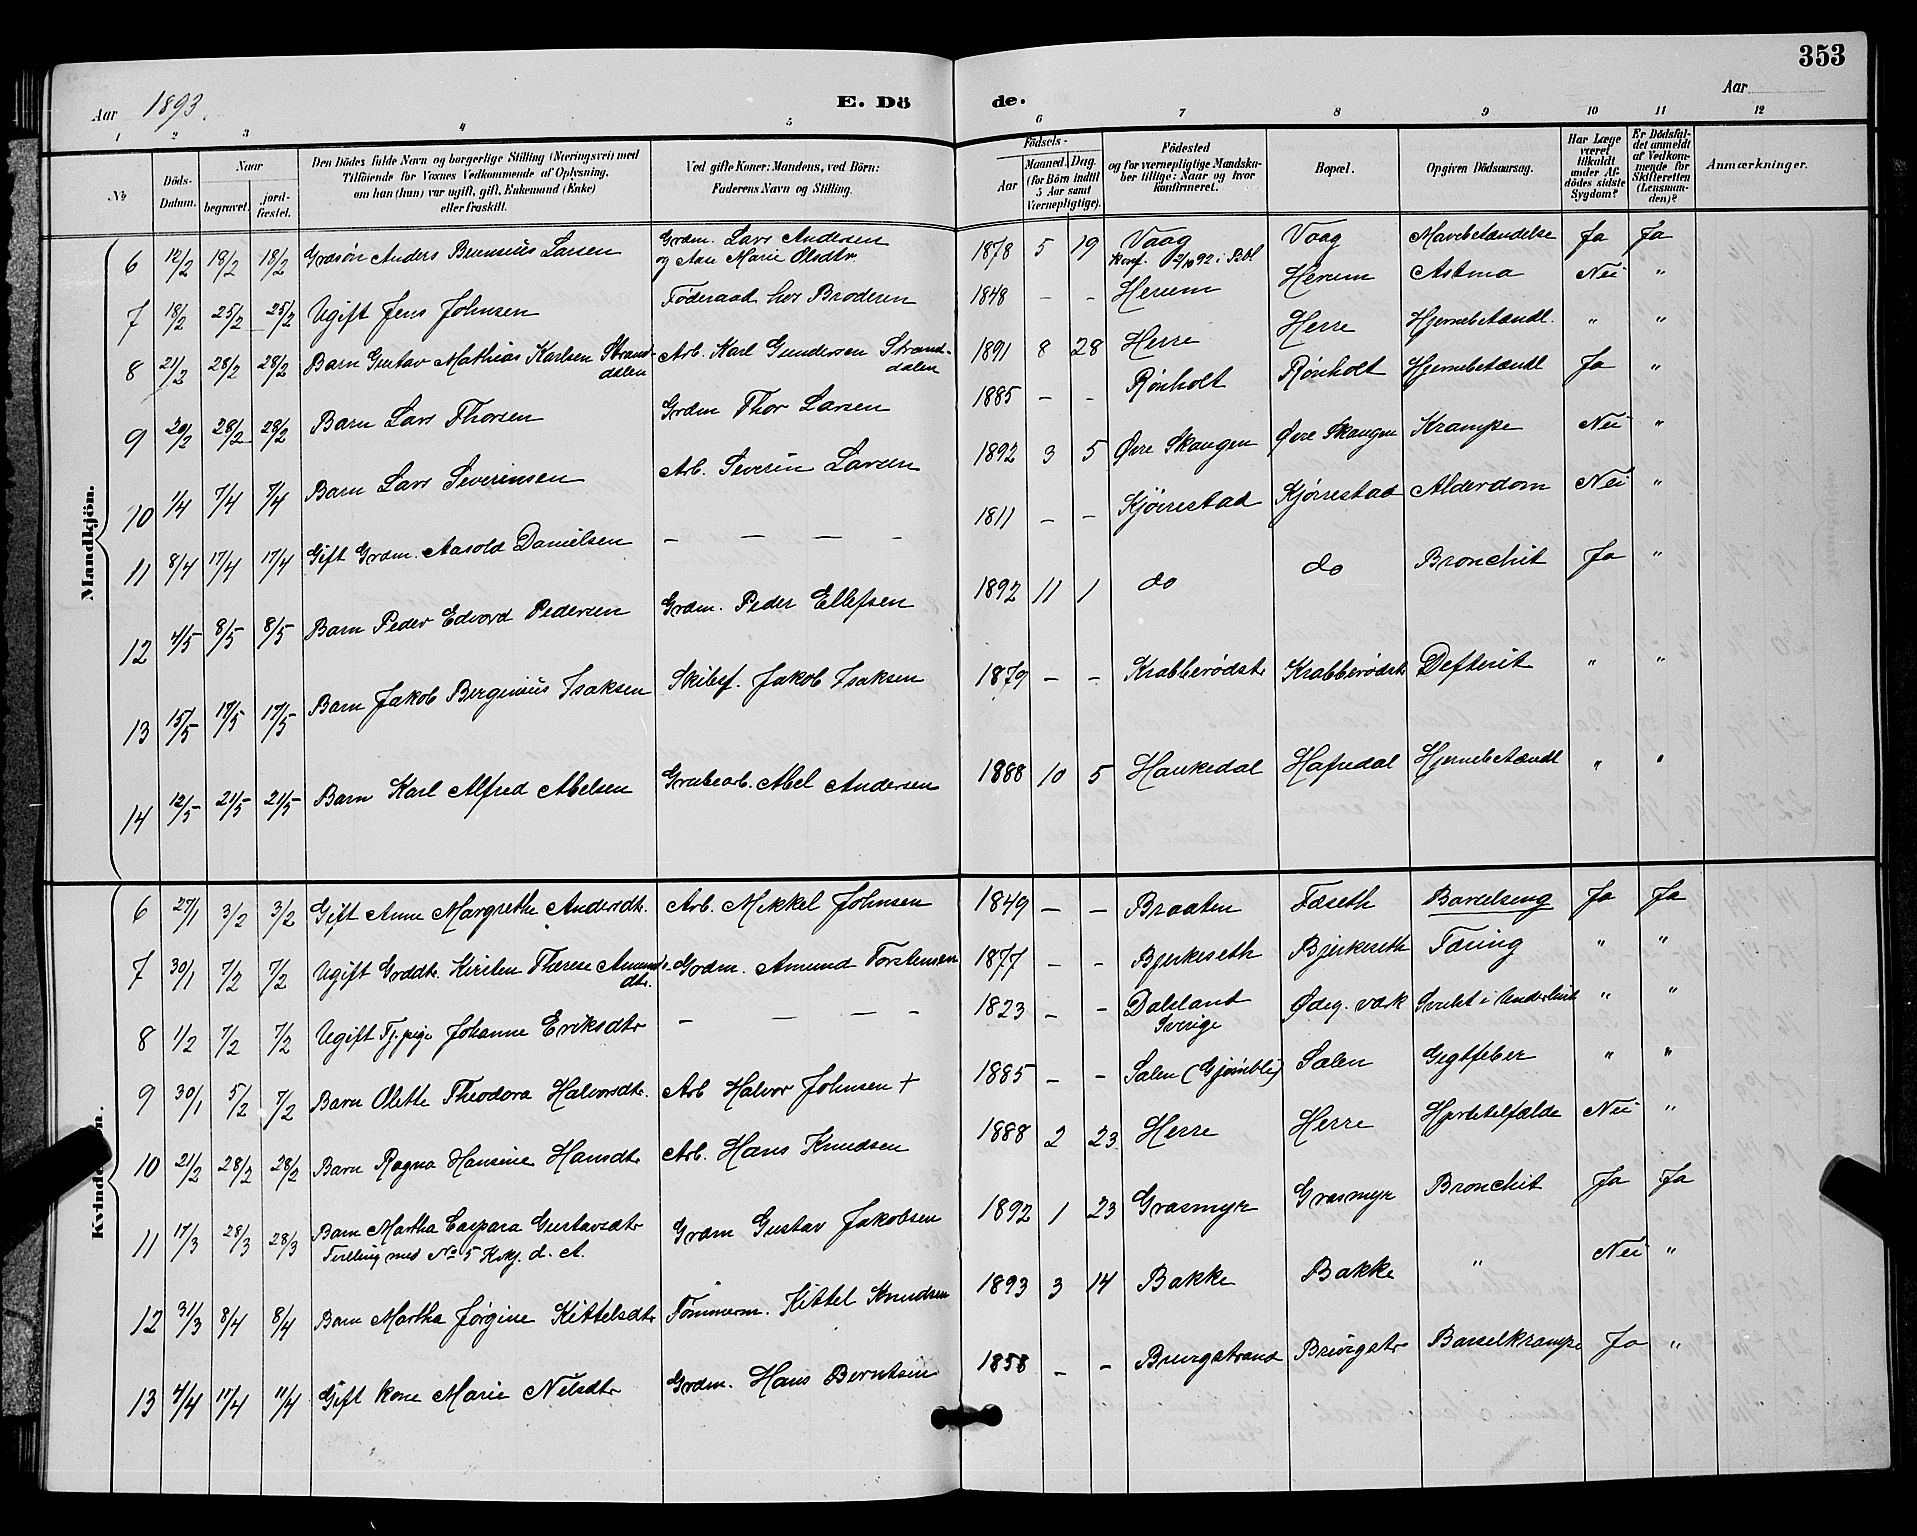 353
Aar 1893.
E. Döde.
Aar
1 2 3 4 5 6 7 8 9 10 11 12
No
Döds-Datum.
Naar
begravet.
jordfæstet.
Den Dödes fulde Navn og borgerlige Stilling (Næringsvei) med
Tilföiende for Voxnes Vedkommende af Oplysning,
om han (hun) var ugift, gift, Enkemand (Enke)
eller fraskilt.
Ved gifte Koner: Mandens, ved Börn:
Faderens Navn og Stilling.
Födsels-
Aar
Maaned. Dag.
(for Börn indtil
5 Aar samt
Værnepligtige).
Födested
og for værnepligtige Mandskaber tillige: Naar og hvor
konfirmeret.
Bopæl.
Opgiven Dödsaarsag.
Har Læge
været
tilkaldt
under Afdödes sidste
Sygdom?
Er Dödsfaldet anmeldt
af Vedkommende for
Skifteretten
(Lensmanden)?
Anmærkninger.
Mandkjön.
6 12/2 18/2 18/2 Grdsøn Anders Larsen Grdm. Lars Andersen og Marie Olsdtr 1878 5 19 Vaag Konf. 2/10 92 i Vaag Mavebetændelse Ja Ja
7 18/2 25/2 25/2 Ugift Jens Johnsen Føderaad hos Broderen 1848 - - Herum Herum Astma Nei "
8 21/2 28/2 28/2 Barn Gustav Mathias Karlsen Stranddalen Arb. Karl Gundersen Stranddalen 1891 8 28 Herre Herre Hjernebetændl. " "
9 20/2 28/2 28/2 Barn Lars Thorsen Grdm Thor Larsen 1885 - - Rønholt Rønholt Hjernebetændl Ja "
10 1/4 7/4 7/4 Barn Lars Severinsen Arb. Severin Larsen 1892 3 5 Øvre Skaugen Øvre Skaugen Krampe Nei "
11 8/4 17/4 17/4 Gift Grdm. Aasold Danielsen - - - - 1811 - - Kjørrestad Kjørrestad Alderdom Nei "
12 4/5 8/5 8/5 Barn Peder Edvard Pedersen Grdm. Peder Ellefsen 1892 11 1 do do Bronchit Ja "
13 15/5 17/5 17/5 Barn Jakob Berginius Isaksen Skibsf. Jakob Isaksen 1879 - - Krabberødstr Krabberødstr Defterit " "
14 12/5 21/5 21/5 Barn Karl Alfred Abelsen Grubearb. Abel Andersen 1888 10 5 Haukedal Hafredal Hjernebetændl " "
Kvindekjön.
6 27/1 3/2 3/2 Gift Anne Margrethe Andersdtr. Arb. Mikkel Johnsen 1849 - - Braaten Fæseth Barselseng Ja Ja
7 30/1 7/2 7/2 Ugift Grddtr. Kirsten Therese Amundsdtr. Grdm. Amund Torstensen 1877 - - Bjerkeseth Bjerkeseth Tæring " "
8 1/2 7/2 7/2 Ugift Tj.pige Johanne Eriksdtr - - - - 1823 - - Dalsland Sverige Ødeg. værk Svulst i Underlivet " "
9 30/1 5/2 7/2 Barn Olette Theodora Halvorsdtr. Arb Halvor Johnsen + 1885 - - Salen (Gjømle) Salen Gigtfeber " "
10 21/2 28/2 28/2 Barn Ragna Hansine Hansdtr Arb. Hans Knudsen 1888 2 23 Herre Herre Hjertetilfælde Nei "
11 17/3 28/3 28/3 Barn Martha Caspara Gustavsdtr Tvilling med No 5 Kvkj. d. A. Grdm Gustav Jakobsen 1892 1 23 Grasmyr Grasmyr Bronchit Ja Ja
12 31/3 8/4 8/4 Barn Martha Jørgine Kittelsdtr Tømmerm. Kittel Knudsen 1893 3 14 Bakke Bakke " Nei "
13 4/4 11/4 11/4 Gift kone Marie Nelsdtr Grdm. Hans Berntsen 1858 - - Brevigstrand Brevigstr Barselkrampe Ja "